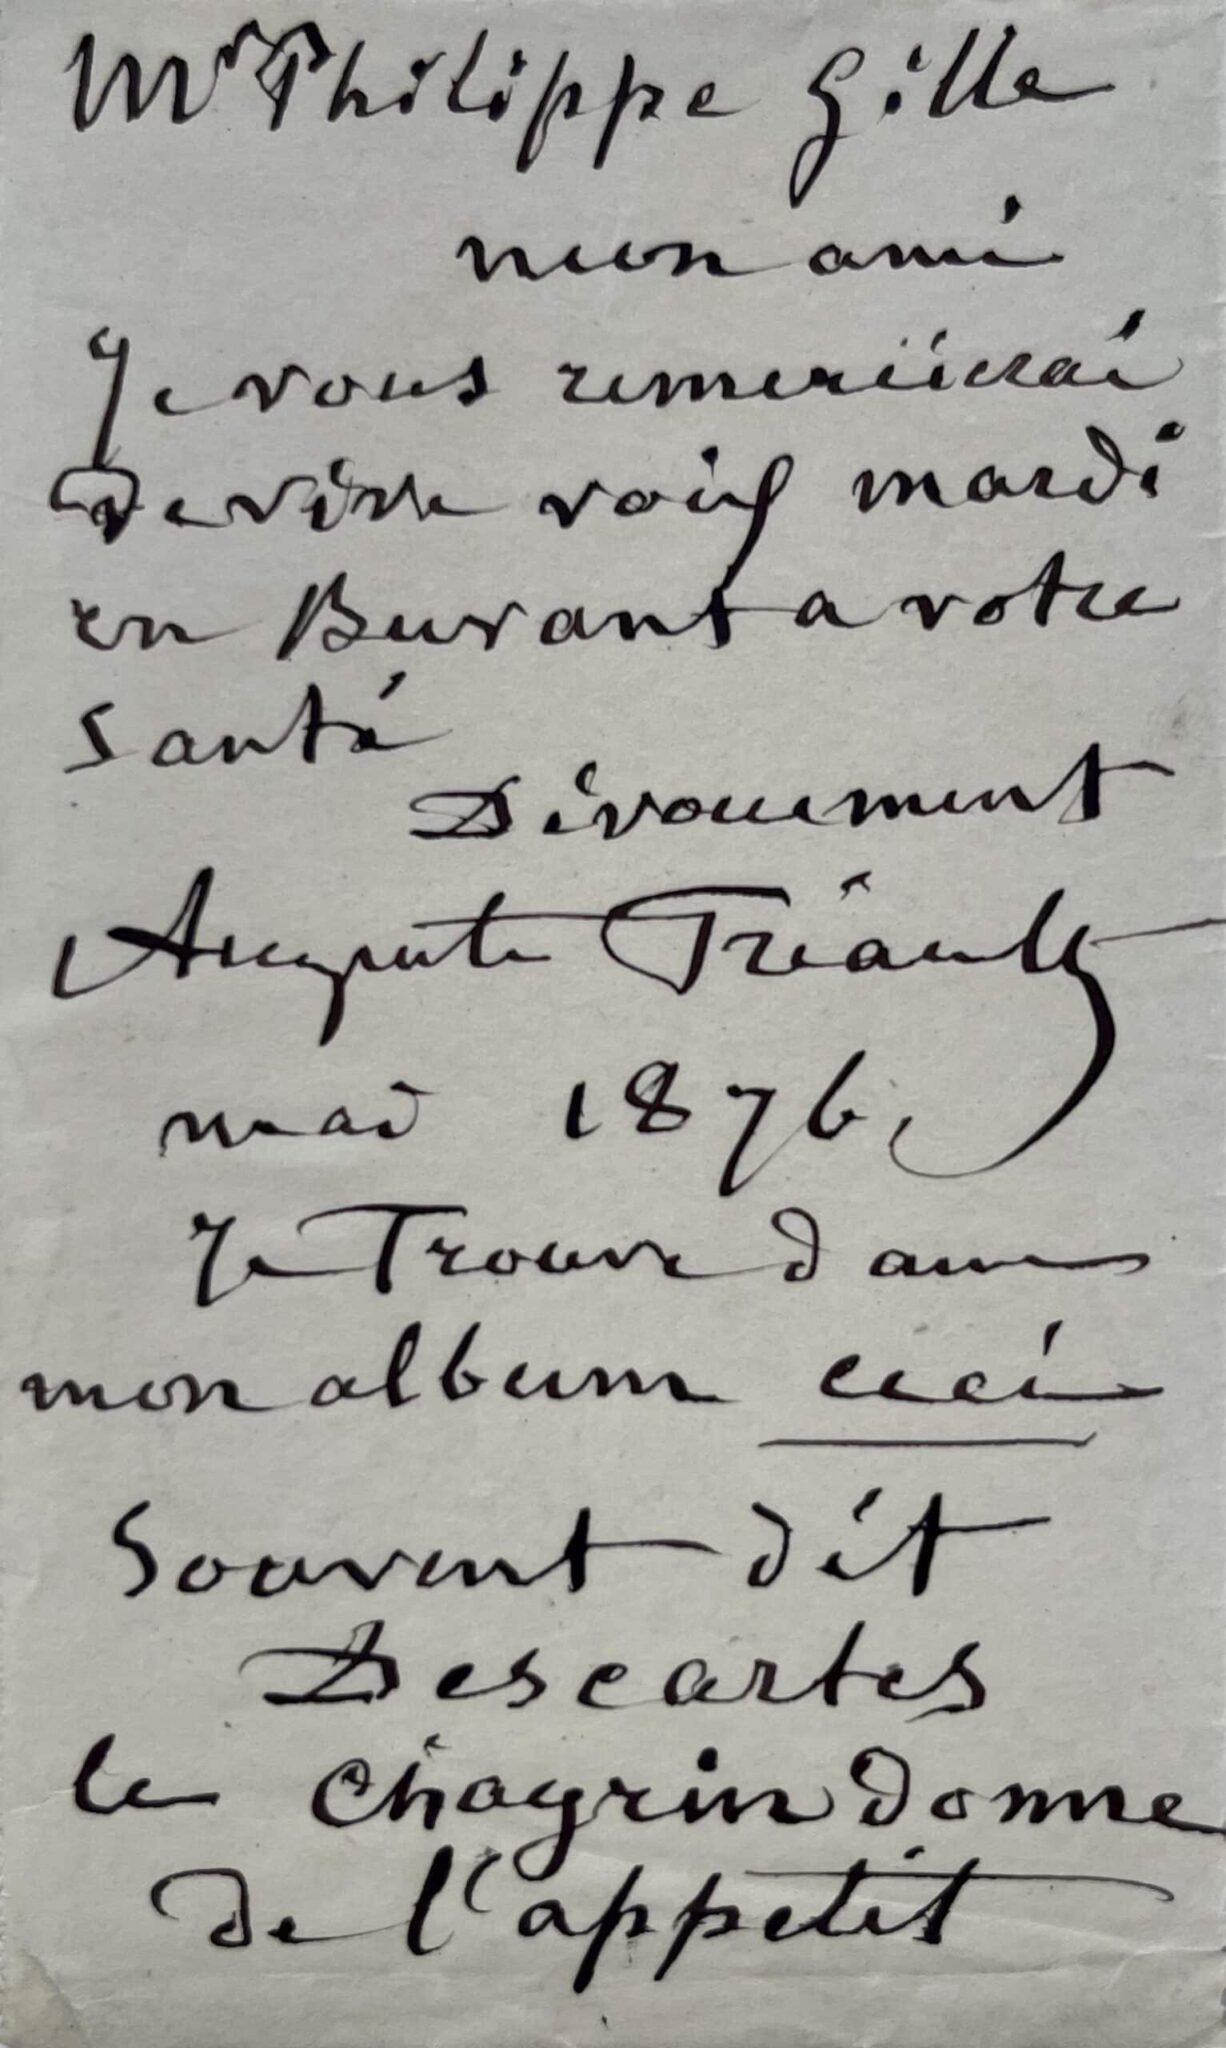 Mr Philippe Gille
mon ami
Je vous remercierai
de vive voix mardi
en Buvant a votre
Santé
Dévouement
Auguste
mai 1876
Je Trouve dans
mon album ceci
Souvent dit
Descartes
le chagrin donne
de l'appetit